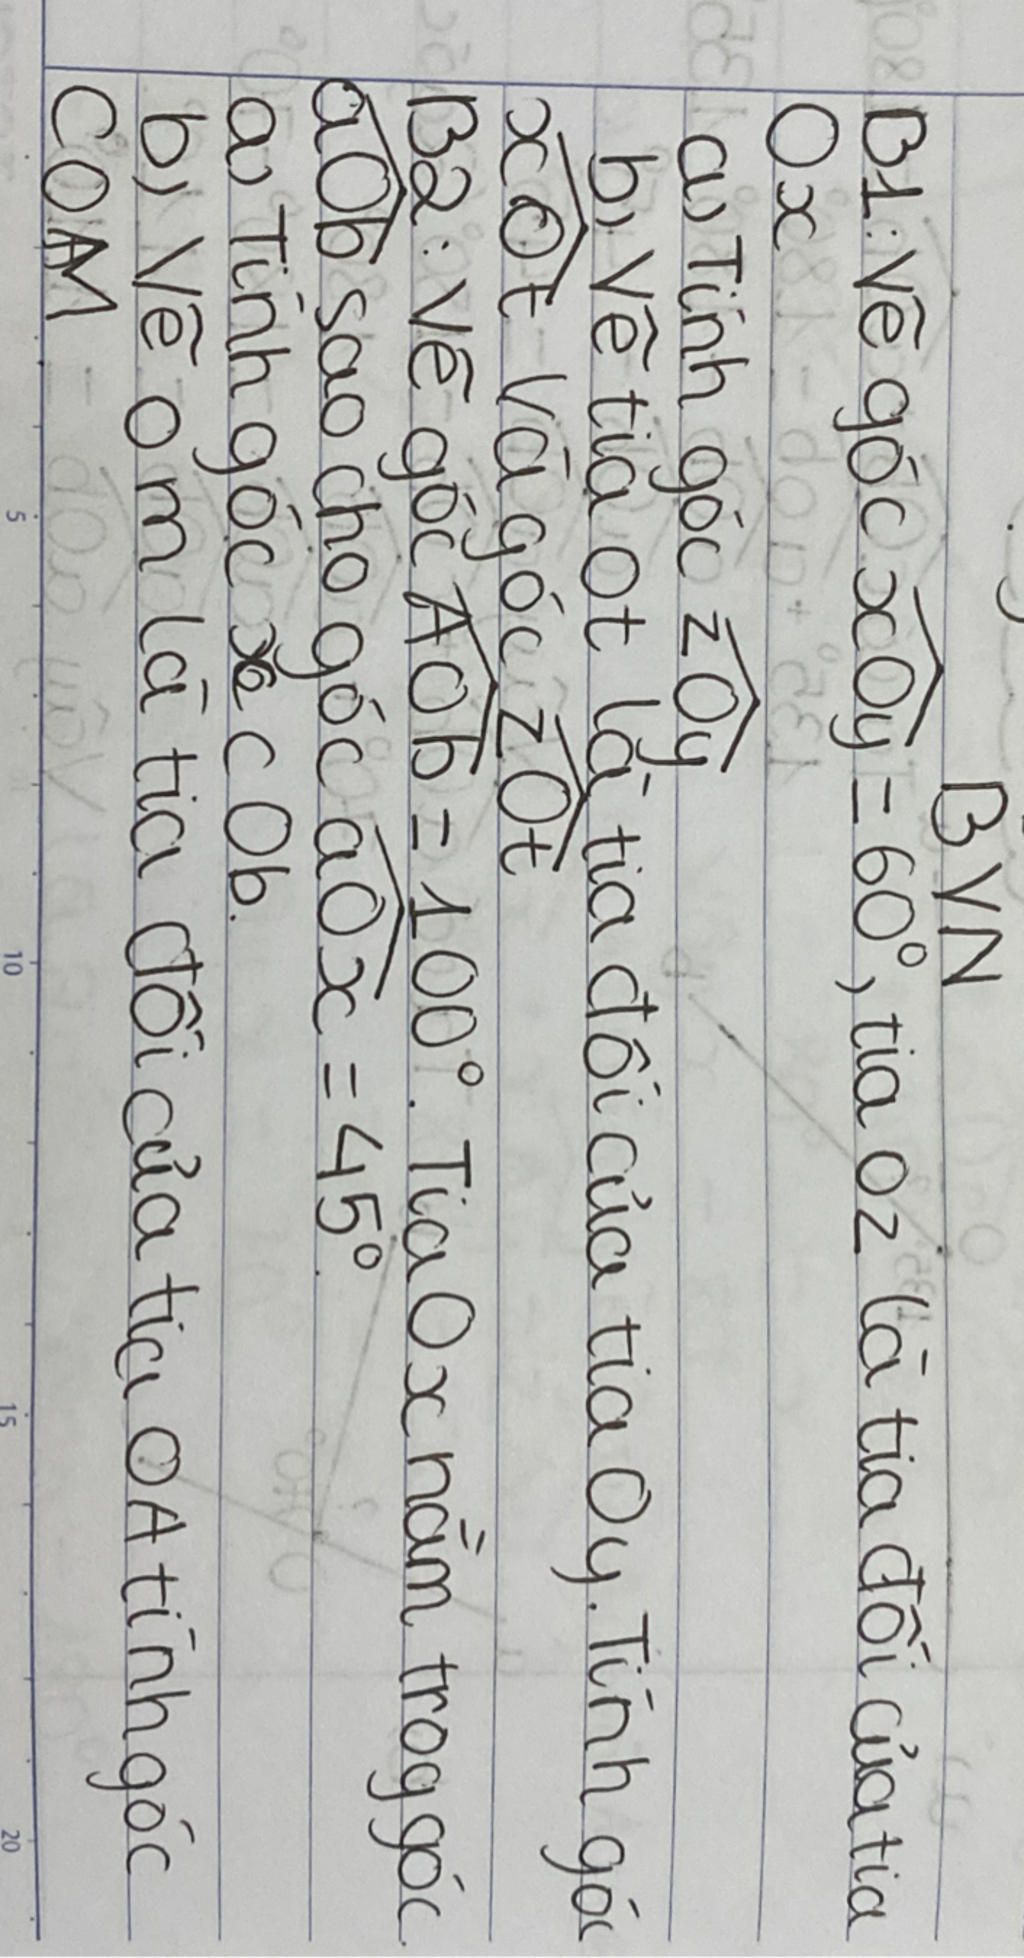 BVN
B1: Vẽ góc xOy = 60°, tia oz là tia đối của tia
Ox
a) Tính góc zOy
b) Vẽ tia ot là tia đối của tia Oy. Tính góc
xOt và góc zOt
B2: Vẽ góc AOb = 100°. Tia Ox nằm trog góc
aOb sao cho góc aOx = 45°
a) Tính góc x c Ob.
b) Vẽ om là tia đối của tia OA tính góc
COM
5
10
15
20